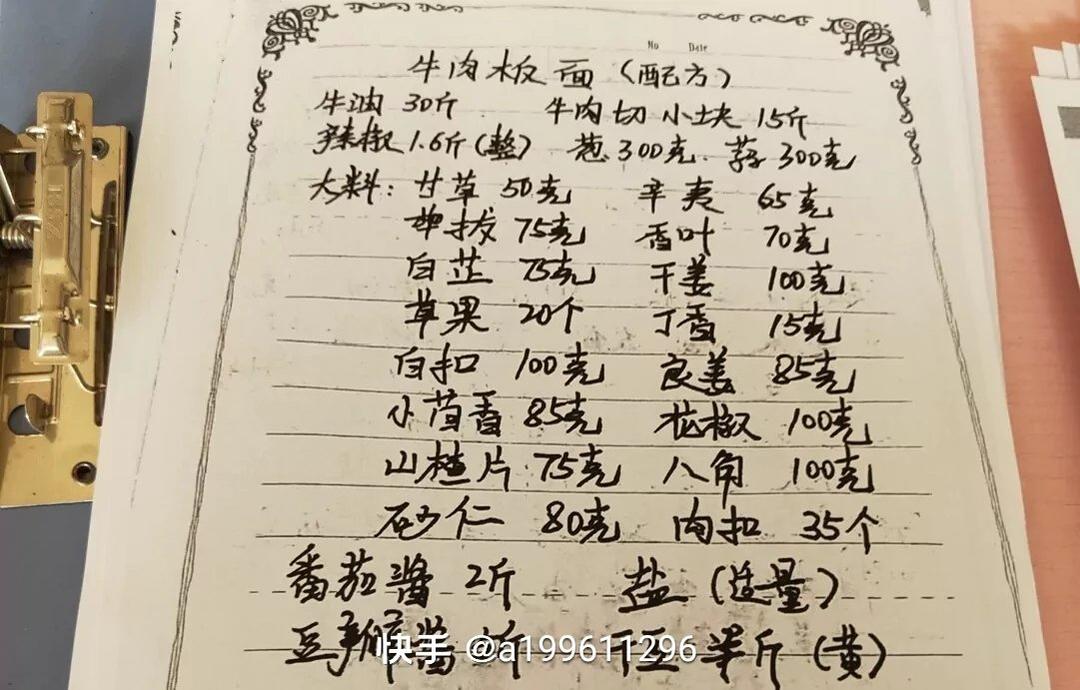 No Date
牛肉板面（配方）
牛油 30斤 牛肉切小块 15斤
辣椒 1.6斤(整) 葱300克. 蒜300克
大料: 甘草 50克 辛夷 65克
荜拔 75克 香叶 70克
白芷 75克 干姜 100克
草果 20个 丁香 15克
白扣 100克 良姜 85克
小茴香 85克 花椒 100克
山楂片 75克 八角 100克
砂仁 80克 肉扣 35个
番茄酱 2斤 盐 (适量)
豆瓣酱 斤 半斤 (黄)
快手 @a199611296